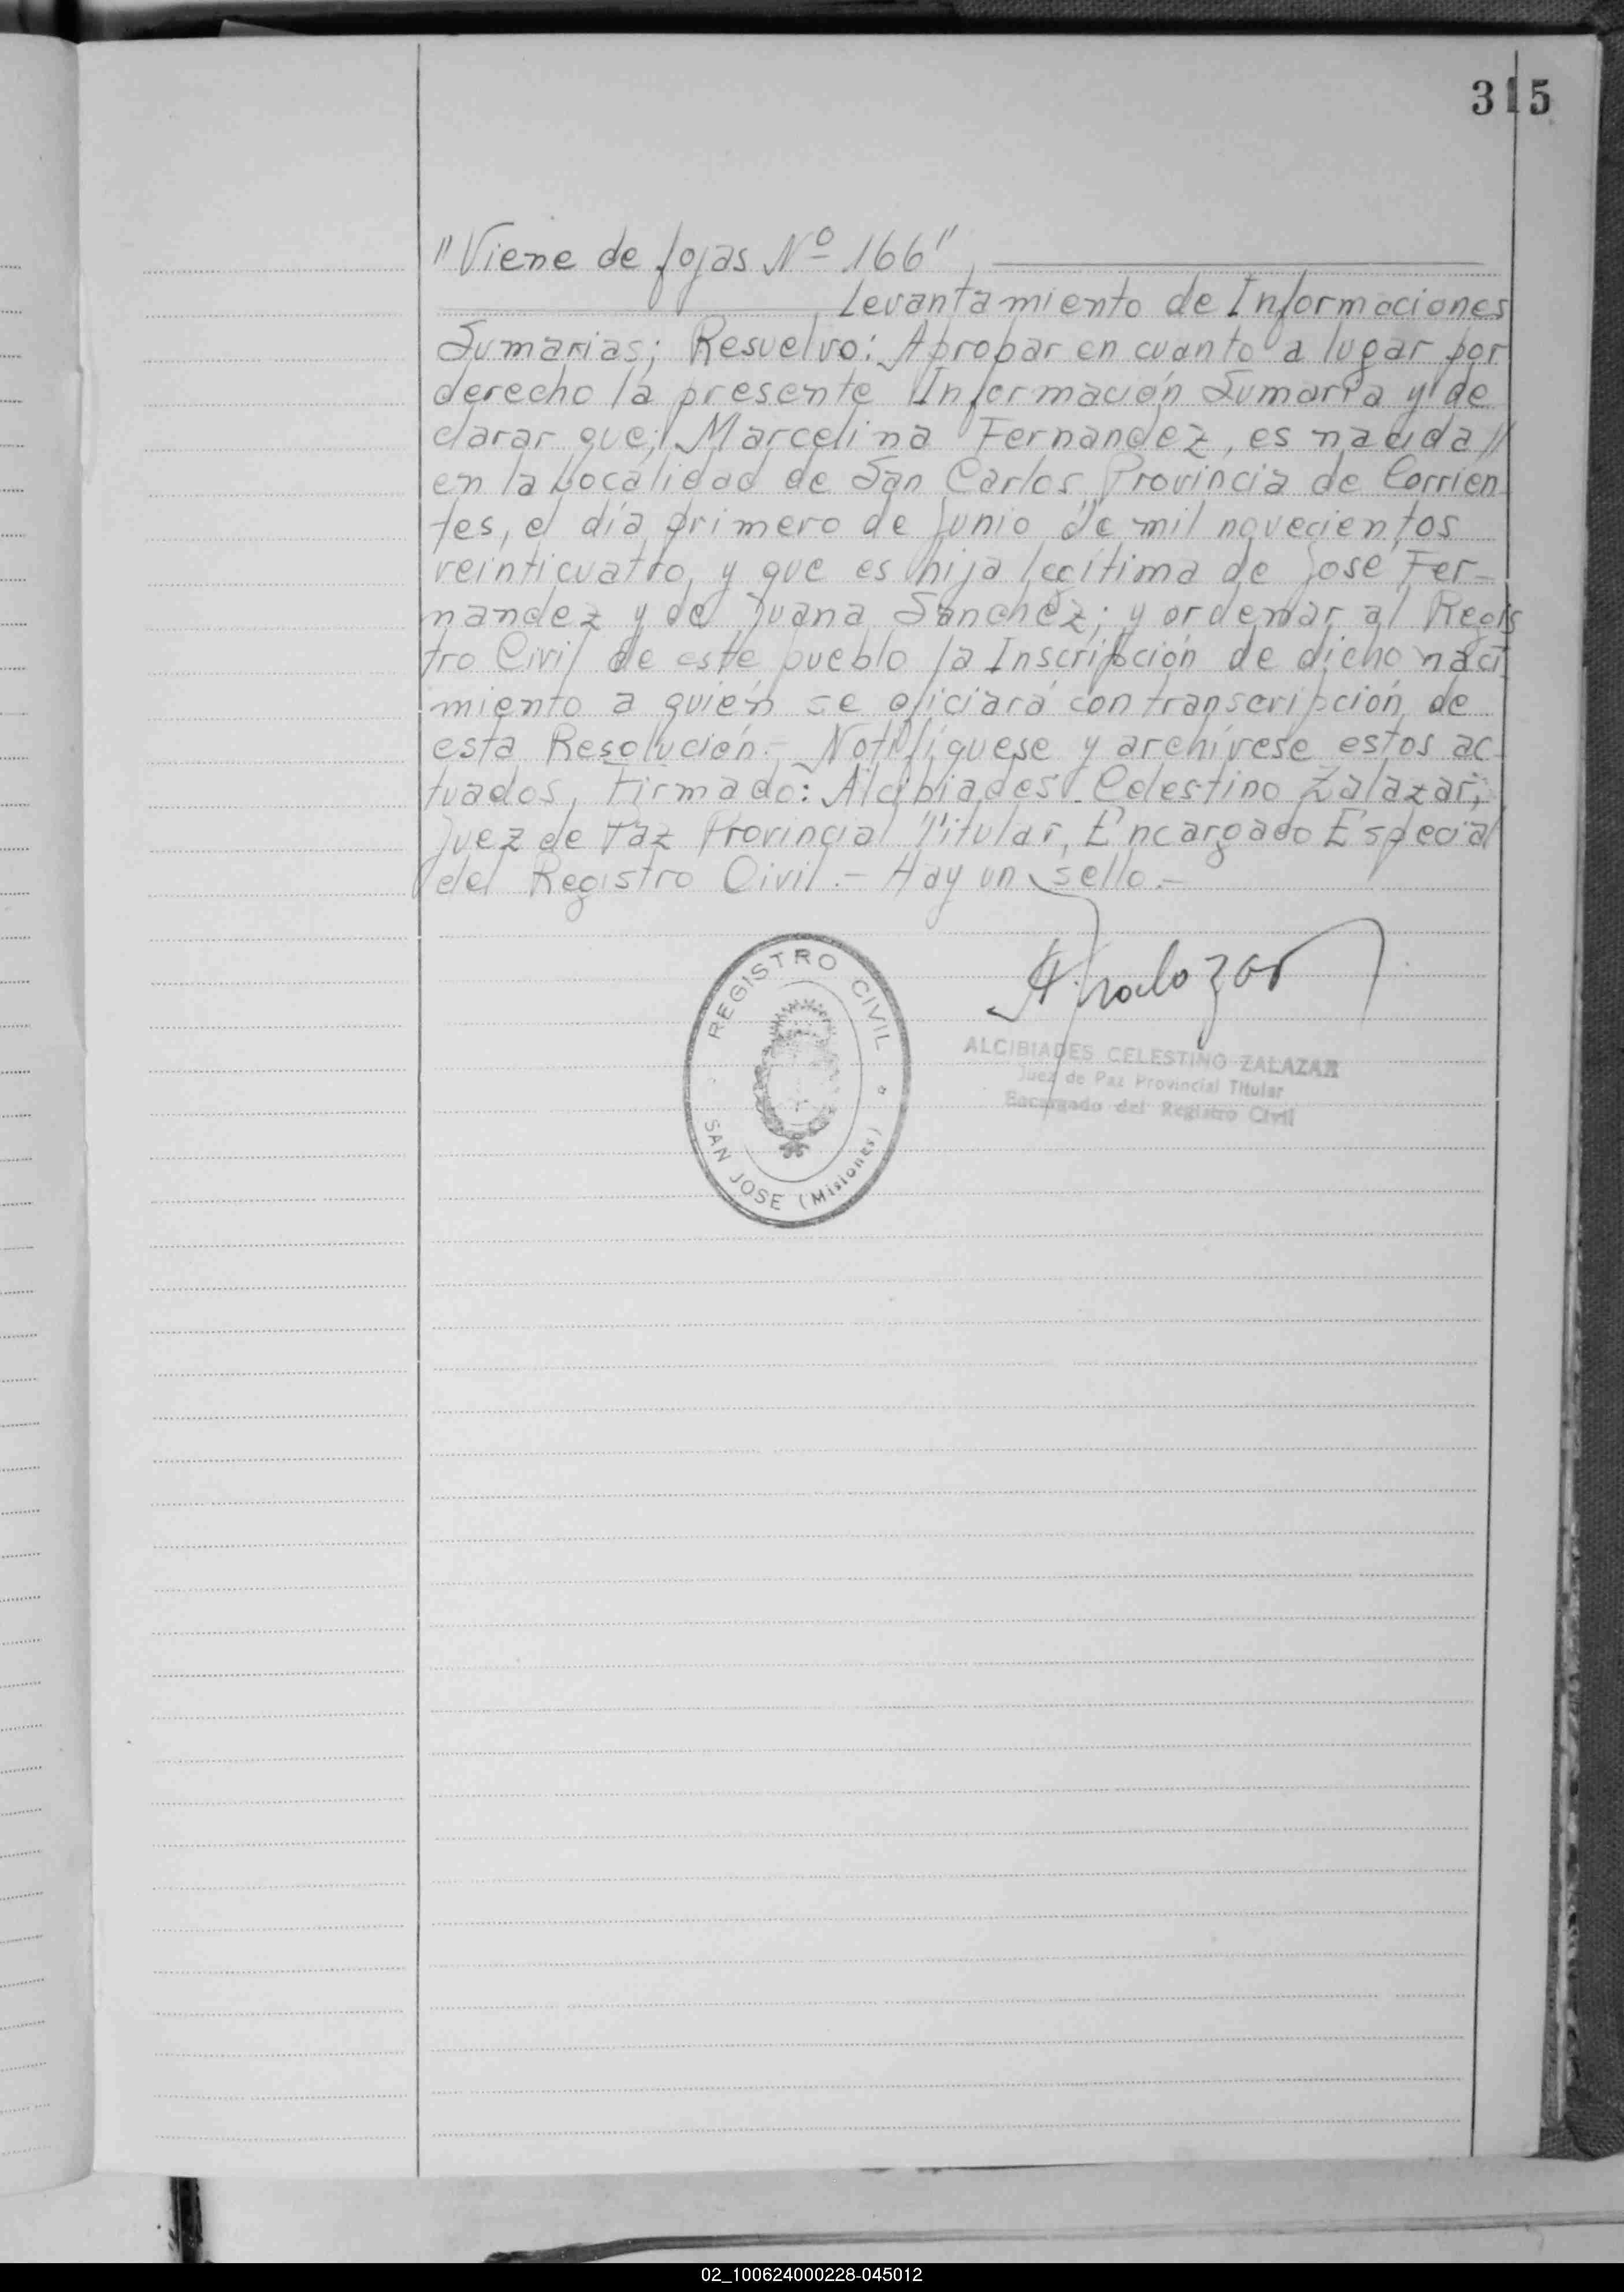 315
"Viene de fojas Nº 166"
Levantamiento de Informaciones
Sumarias; Resuelvo: Aprobar en cuanto a lugar por
derecho la presente Información Sumaria y de
clarar que; Marcelina Fernandez, es nacida //
en la Localidad de San Carlos, Provincia de Corrien
tes, el día primero de Junio de mil novecientos
veinticuatro, y que es hija legítima de José Fer-
nandez y de Juana Sanchez; y ordenar al Regis
tro Civil de este pueblo la Inscripción de dicho naci
miento a quién se oficiará con transcripción de
esta Resolución.- Notifíquese y archívese estos ac
tuados, Firmado: Alcibiades Celestino Zalazar,
Juez de Paz Provincial Titular, Encargado Especial
del Registro Civil.- Hay un sello.-
REGISTRO CIVIL
SAN JOSE (Misiones)
ALCIBIADES CELESTINO ZALAZAR
Juez de Paz Provincial Titular
Encargado del Registro Civil
02_100624000228-045012